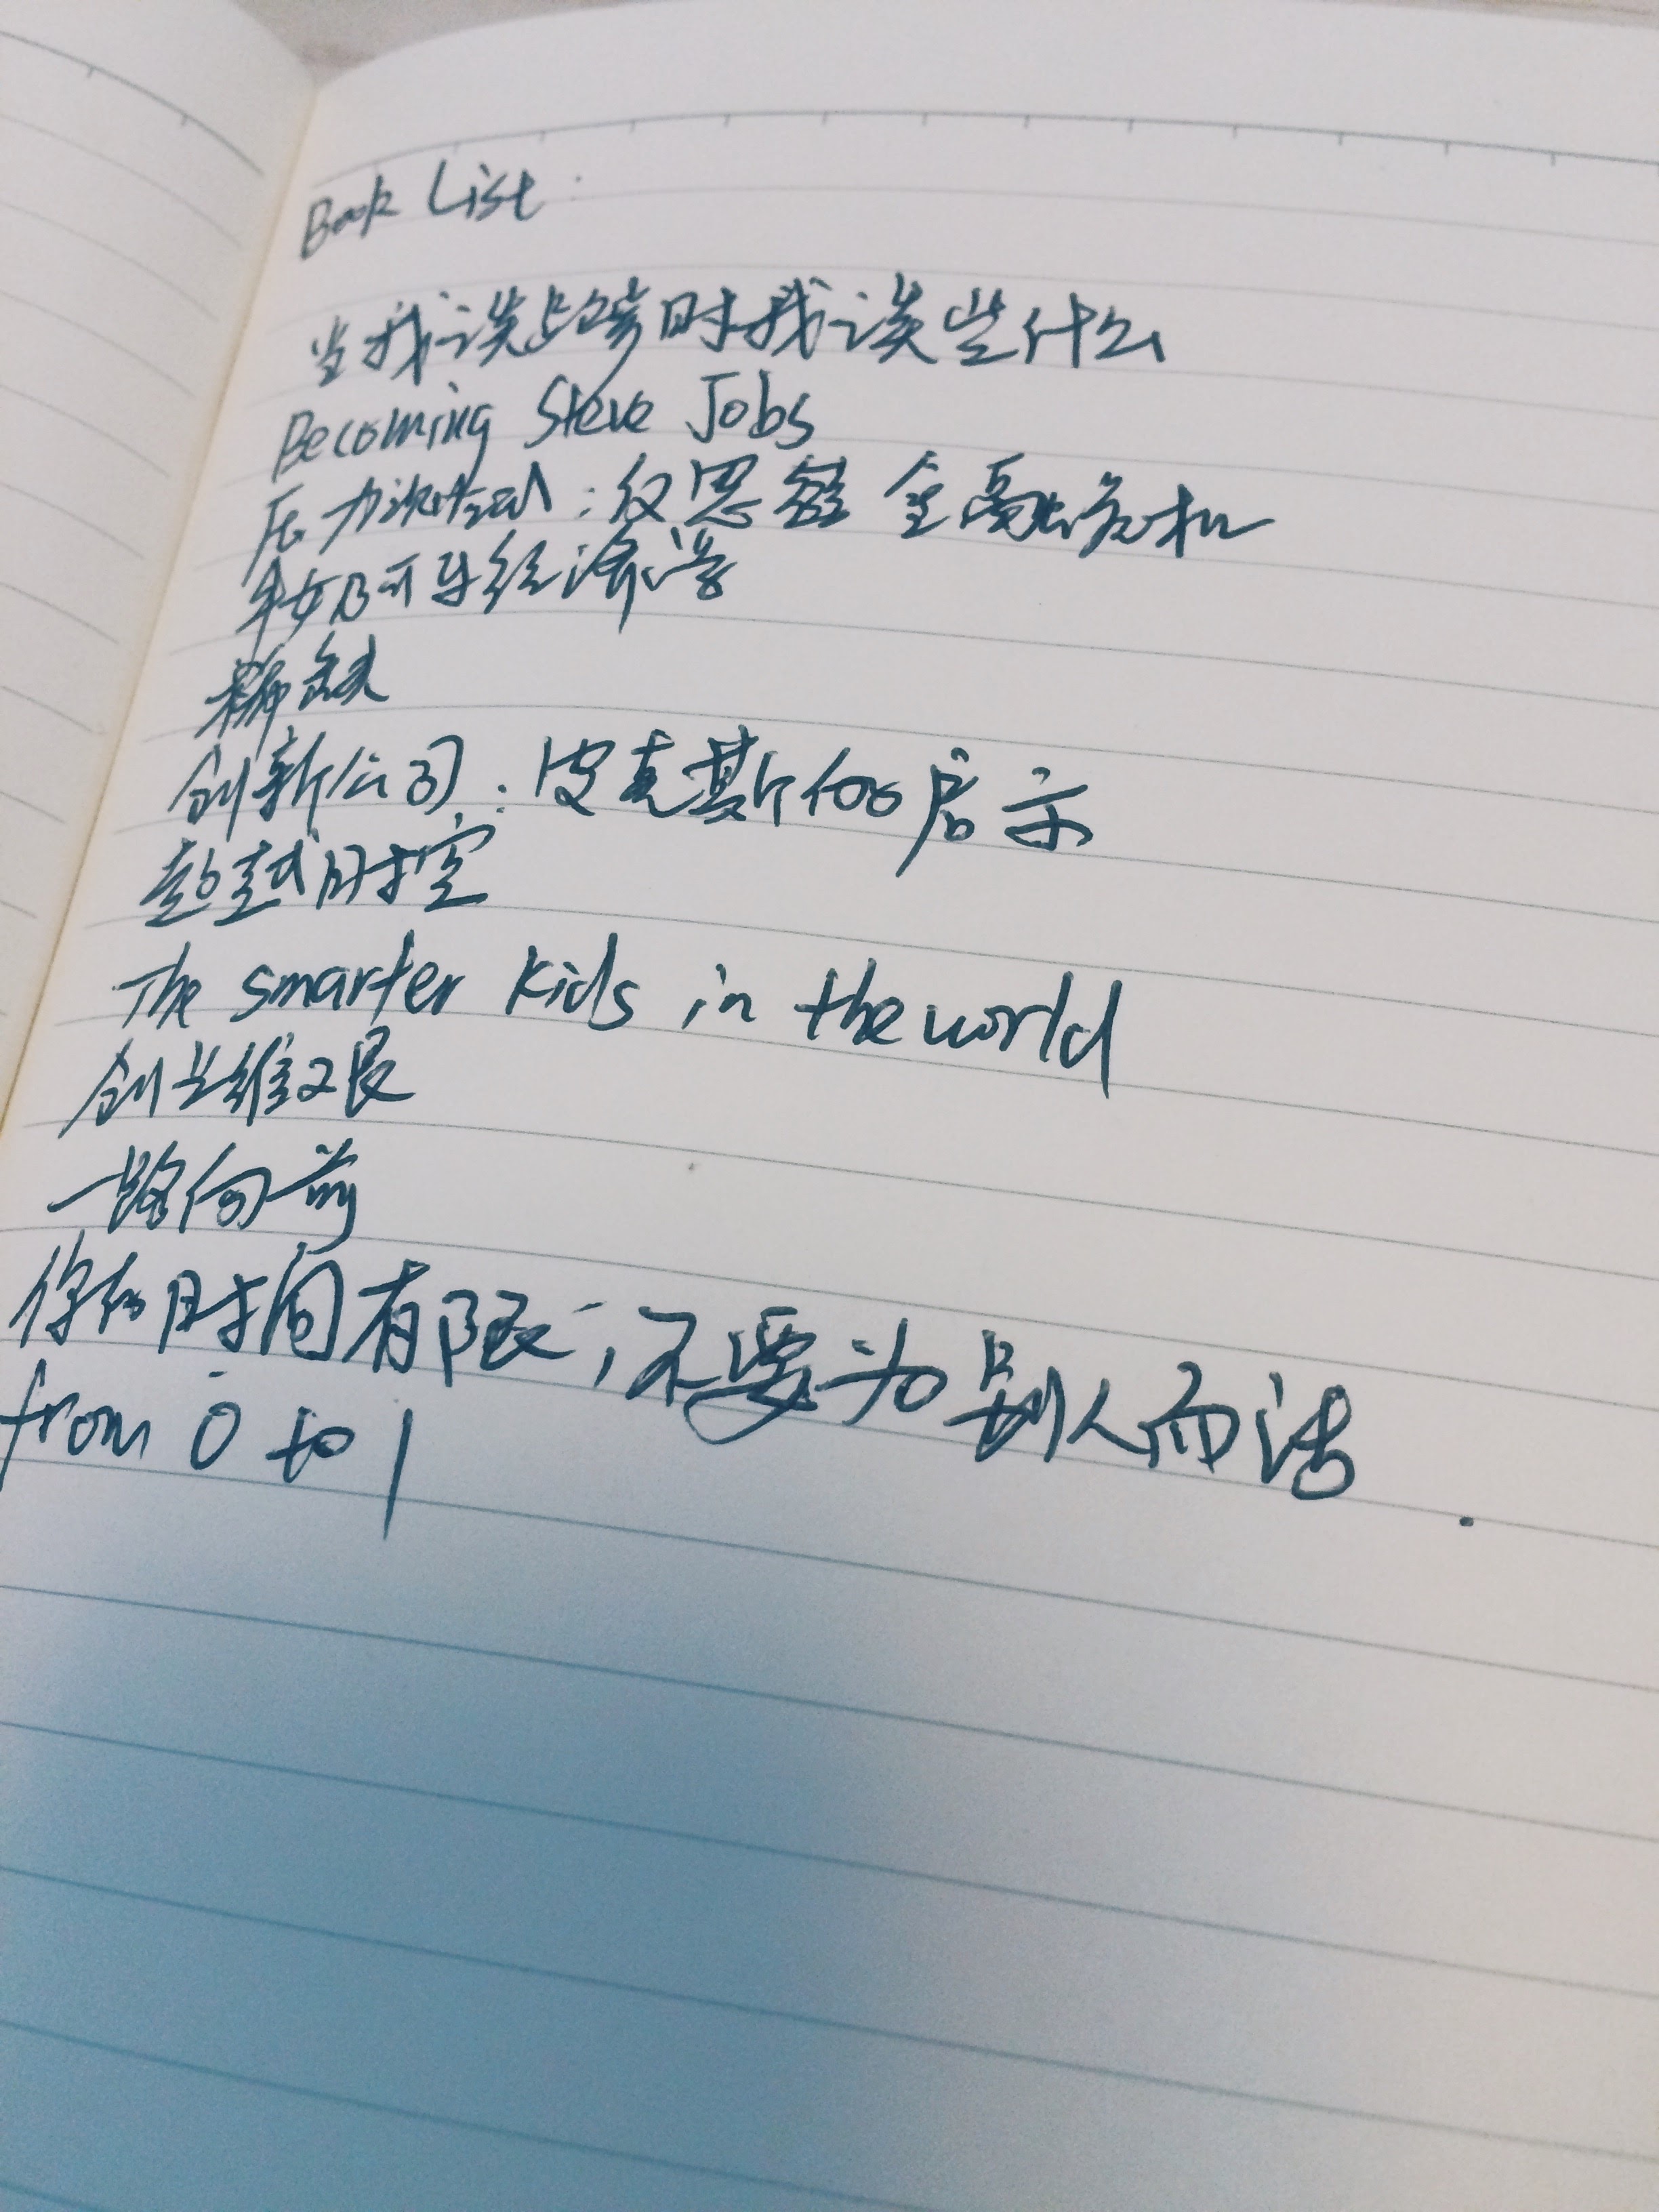 Book List:
当我谈跑步时我谈些什么
Becoming Steve Jobs
压力测试：反思 金融危机
牛奶可乐经济学
稀缺
创新公司：皮克斯的启示
超越时空
The smarter kids in the world
创业维艰
一路向前
你的时间有限，不要为别人而活.
from 0 to 1